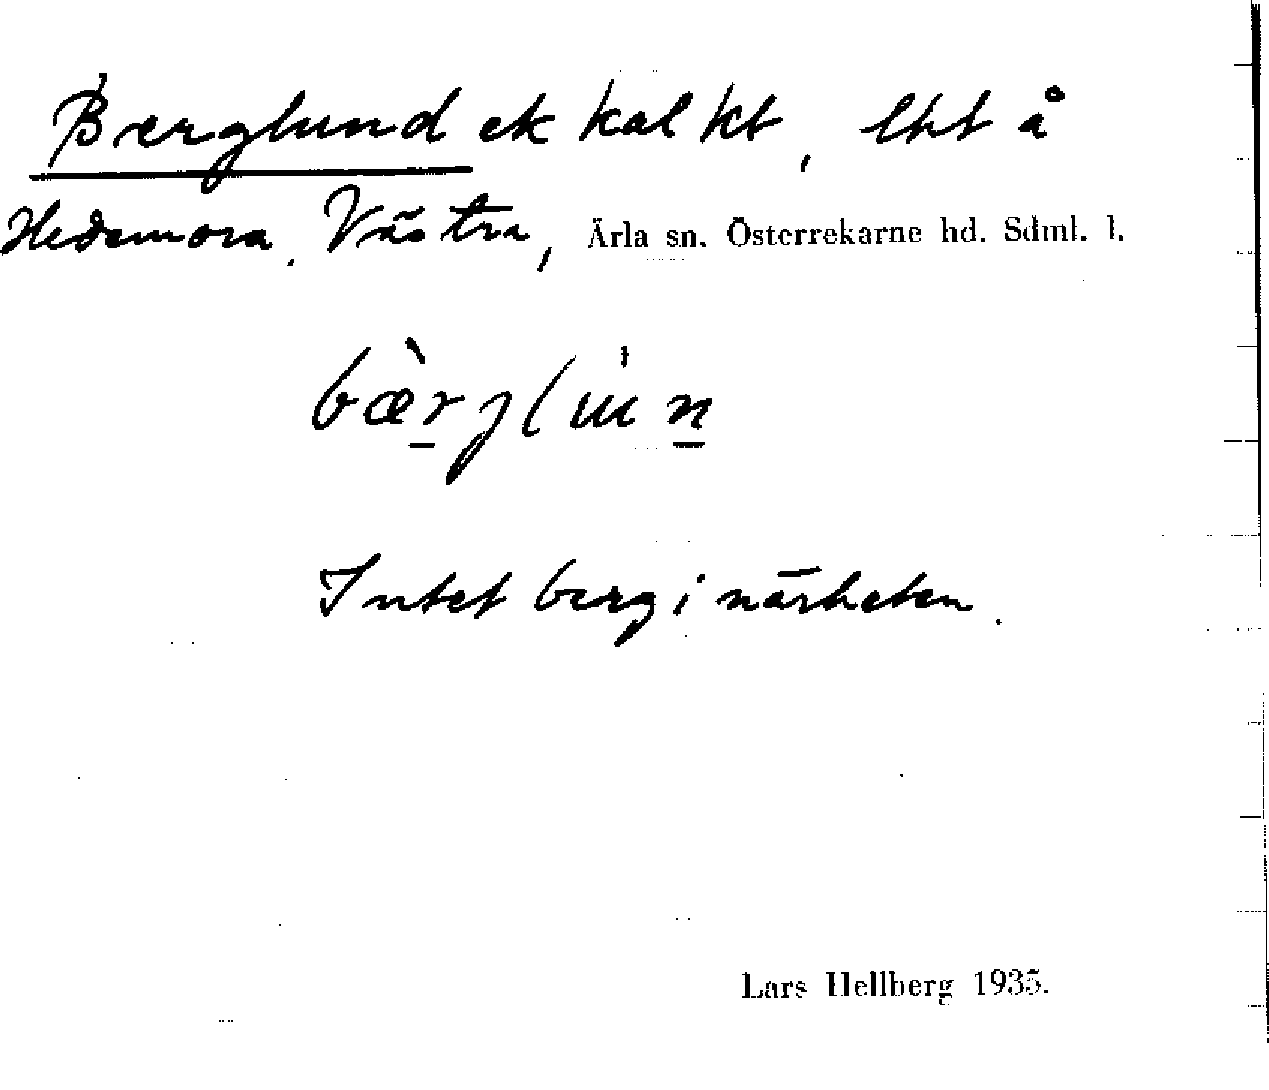 Berglund ek kal kt, lht å
Hedemora, Västra, Ärla sn. Österrekarne hd. Sdml. l.
Intet berg i närheten.
Lars Hellberg 1935.